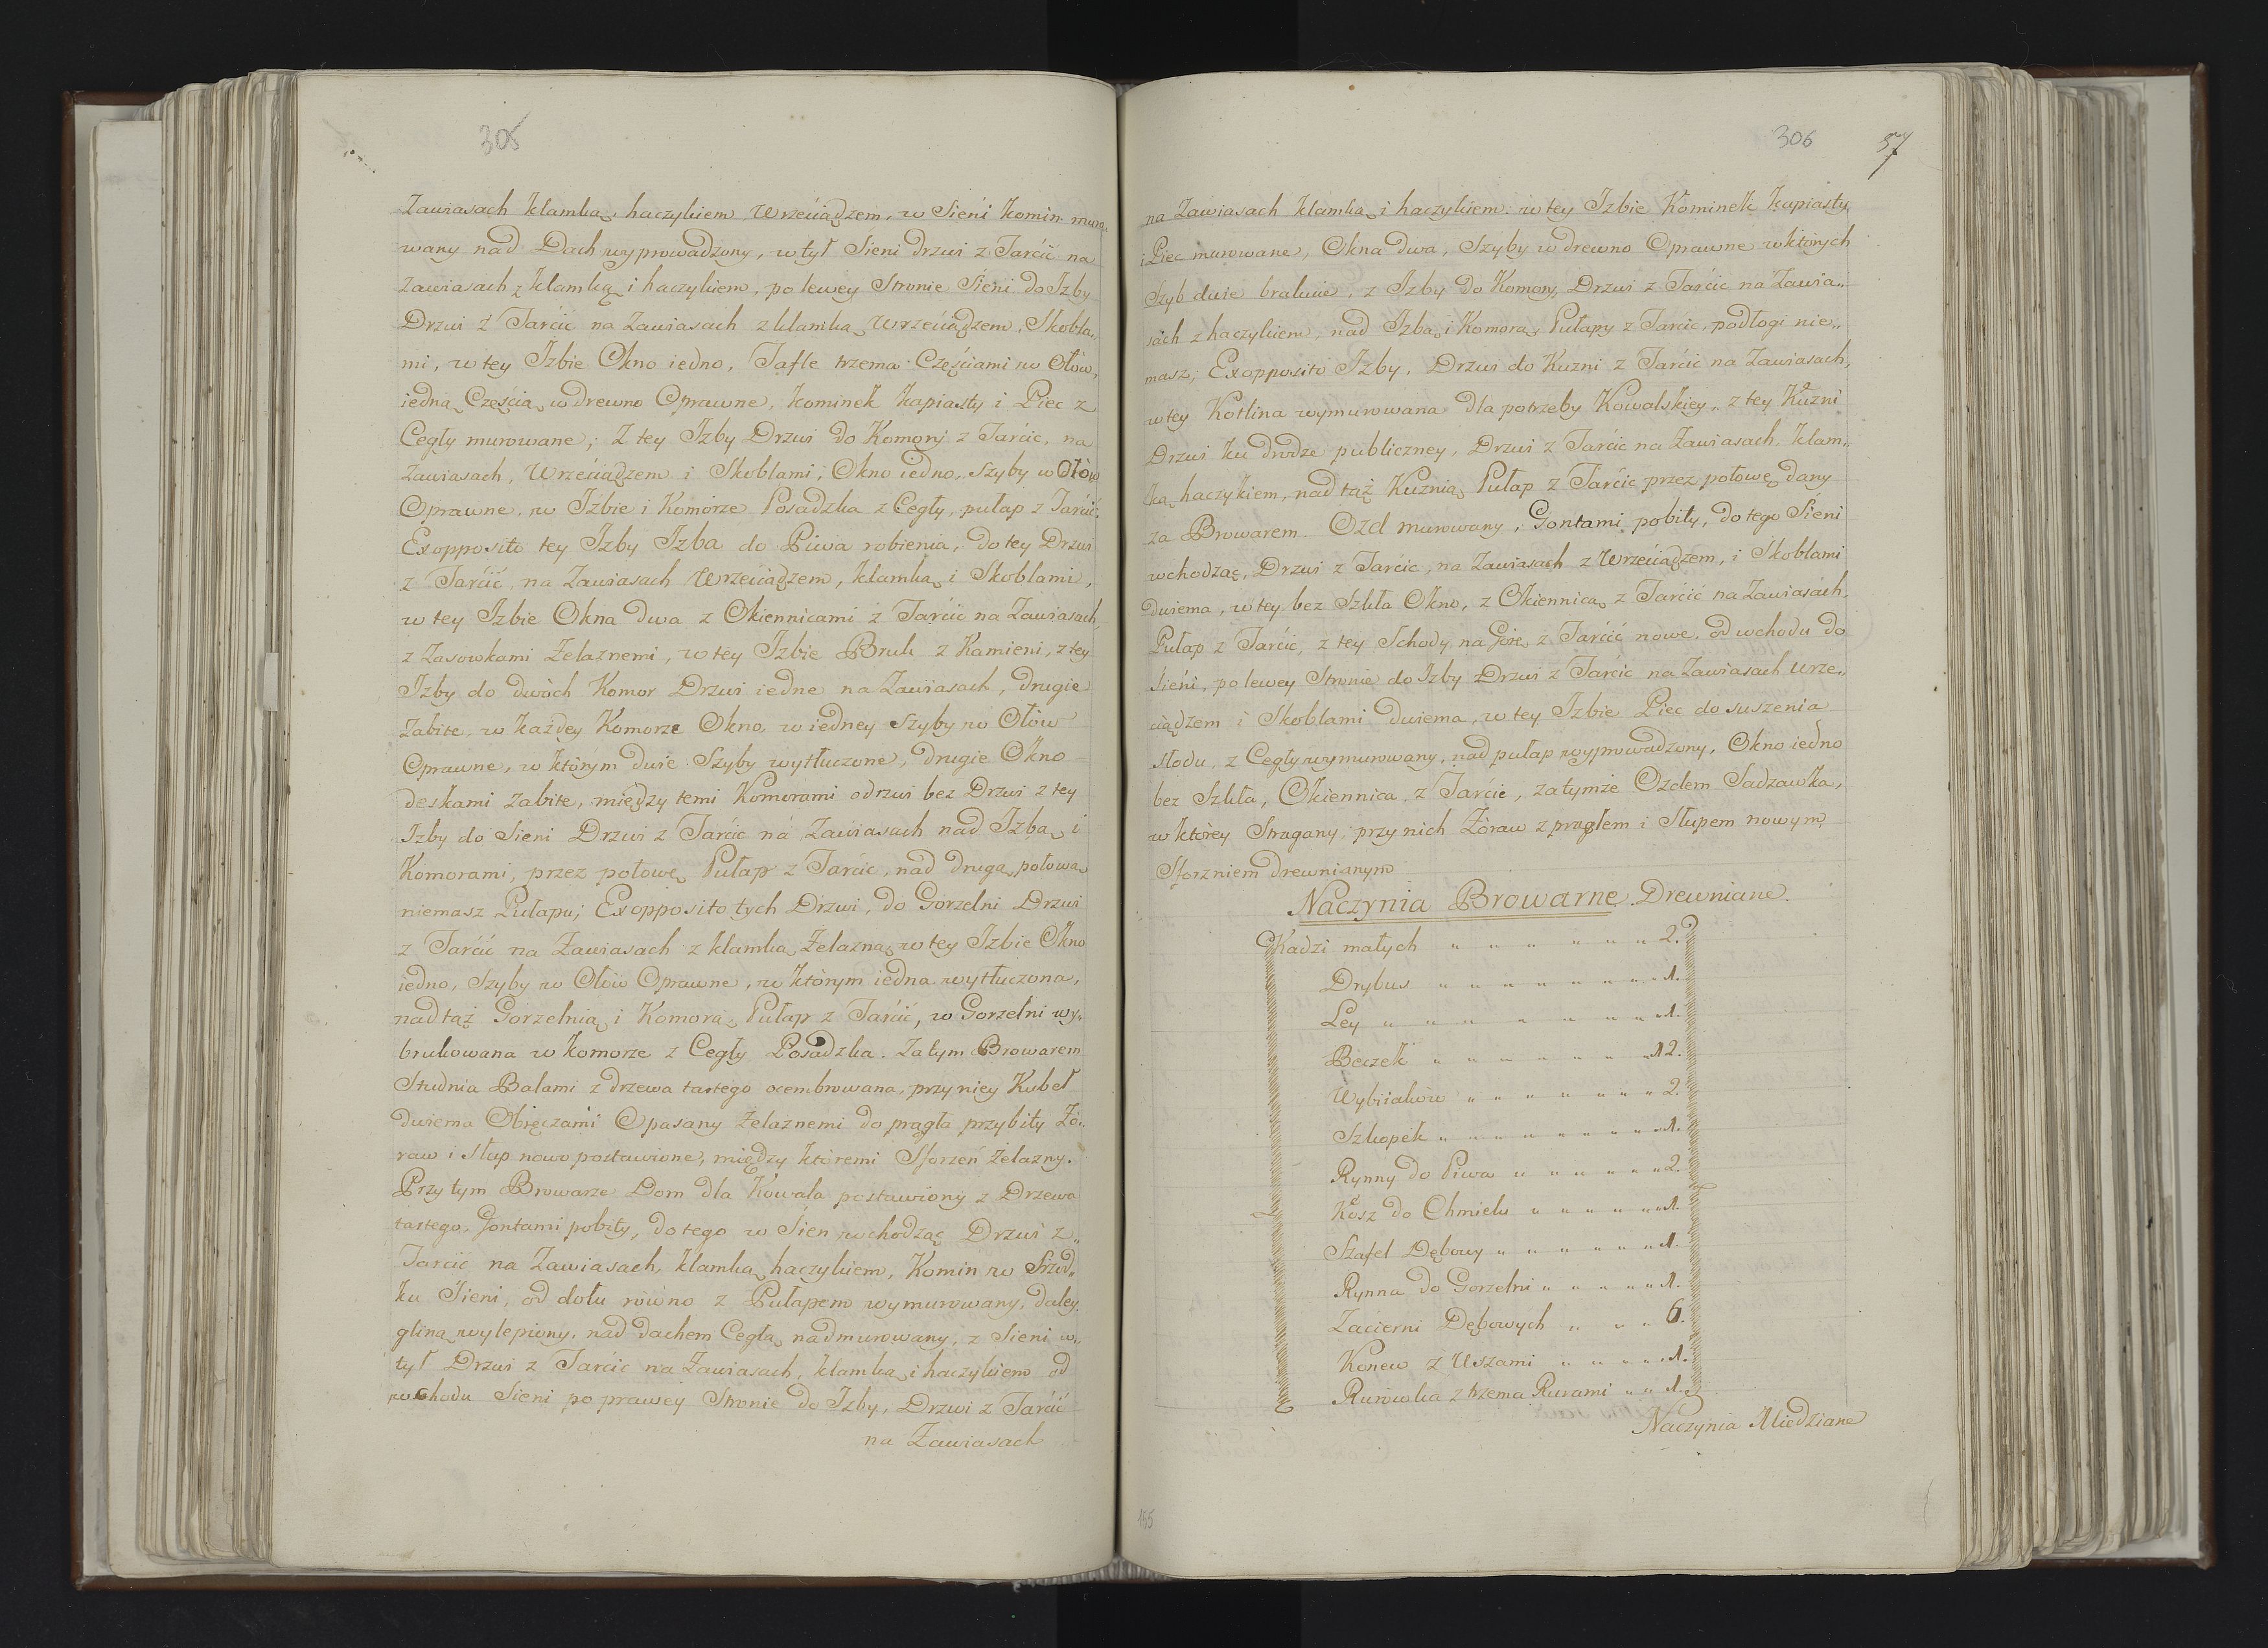 305
Zawiasach klamką, haczykiem Wrzeciądzem, w Sieni komin muro„
wany nad Dach wyprowadzony, w tył Sieni drzwi z Tarcić na
Zawiasach z klamką i haczykiem, po lewey Stronie Sieni do Izby
Drzwi z Tarcic na Zawiasach z klamką, Wrzeciądzem, Skobla„
mi, w tey Izbie Okno iedno, Tafle trzema Częściami w Ołów,
iedną Częścią w drewno Oprawne, kominek kapiasty i Piec z
Cegły murowane; Z tey Izby Drzwi do Komory z Tarcic, na
Zawiasach, Wrzeciądzem i Skoblami; Okno iedno, Szyby w Ołów
Oprawne, w Izbie i Komorze Posadzka z Cegły, pułap z Tarcić.
Exopposito tey Izby Izba do Piwa robienia, do tey Drzwi
z Tarcić, na Zawiasach Wrzeciądzem, klamką i Skoblami,
w tey Izbie Okna dwa z Okiennicami z Tarcic na Zawiasach,
z Zasówkami Żelaznemi, w tey Izbie Bruk z Kamieni, z tey
Izby do dwóch Komor Drzwi iedne na Zawiasach, drugie
Zabite, w każdey Komorze Okno, w iedney Szyby w Ołów
Oprawne, w którym dwie Szyby wytłuczone, drugie Okno
deskami zabite, między temi Komorami odrzwi bez Drzwi z tey
Izby do Sieni Drzwi z Tarcic na Zawiasach nad Izbą i
Komorami, przez połowę Pułap z Tarcic, nad drugą połową
niemasz Pułapu; Exopposito tych Drzwi, do Gorzelni Drzwi
z Tarcić na Zawiasach z klamką Żelazną w tey Izbie Okno
iedno, Szyby w Ołów Oprawne, w którym iedna wytłuczona,
nad taż Gorzelnią i Komorą Pułap z Tarcić, w Gorzelni wy„
brukowana w komorze z Cegły Posadzka. Za tym Browarem
Studnia Balami z drzewa tartego ocembrowana, przy niey Kubeł
dwiema Obręczami Opasany żelaznemi do prągła przybity Żó„
raw i słup nowo postawione, między któremi Sforzeń żelazny.
Przy tym Browarze Dom dla Kowala postawiony z Drzewa
tartego, Gontami pobity, do tego w Sień wchodząc Drzwi z„
Tarcic na Zawiasach, klamką haczykiem, Komin w Srzod„
ku Sieni, od dołu równo z Pułapem wymurowany, daley
gliną wylepiony, nad dachem Cegłą nadmurowany, z Sieni w„
tył Drzwi z Tarcic na Zawiasach, klamką i haczykiem od
wchodu Sieni po prawey Stronie do Izby, Drzwi z Tarcić
na Zawiasach
306
57
na Zawiasach klamką i haczykiem: w tey Izbie Kominek kapiasty
i Piec murowane, Okna dwa, Szyby w drewno Oprawne w których
Szyb dwie brakuie, z Izby do Komory, Drzwi z Tarcic na Zawia„
sach z haczykiem, nad Izbą i Komorą Pułapy z Tarcic, podłogi nie„
masz; Exopposito Izby, Drzwi do Kuzni z Tarcić na Zawiasach,
w tey Kotlina wymurowana dla potrzeby Kowalskiey, z tey Kuzni
Drzwi ku drodze publiczney, Drzwi z Tarcic na Zawiasach, klam„
ką haczykiem, nad taż Kuznią Pułap z Tarcic przez połowę dany
za Browarem Ozd murowany, Gontami pobity, do tego Sieni
wchodząc, Drzwi z Tarcic, na Zawiasach z Wrzeciądzem, i Skoblami
dwiema, w tey bez Szkła Okno, z Okiennicą z Tarcić na Zawiasach,
Pułap z Tarcic, z tey Schody na Górę z Tarcić nowe, od wchodu do
Sieni, po lewey Stronie do Izby Drzwi z Tarcic na Zawiasach Wrze„
ciądzem i Skoblami dwiema, w tey Izbie Piec do suszenia
słodu, z Cegły wymurowany, nad pułap wyprowadzony, Okno iedno
bez Szkła, Okiennica z Tarcic, za tymże Ozdem Sadzawka,
w którey Stragany, przy nich Żóraw z prągłem i Słupem nowym,
Sforzniem drewnianym
Naczynia Browarne Drewniane.
Kadzi małych „ „ „ „ „ „ „ 2.
Drybus „ „ „ „ „ „ „ „ 1.
Ley „ „ „ „ „ „ „ „ 1.
Beczek „ „ „ „ „ „ „ 12.
Wybiiaków „ „ „ „ „ „ „ 2.
Szkopek „ „ „ „ „ „ „ „ 1.
Rynny do Piwa „ „ „ „ „ „ 2.
Kosz do Chmielu „ „ „ „ „ „ 1.
Szafel Dębowy „ „ „ „ „ „ „ 1.
Rynna do Gorzelni „ „ „ „ „ 1.
Zacierni Dębowych „ „ „ 6.
Konew z Uszami „ „ „ „ „ 1.
Rurówka z trzema Rurami „ „ 1.
Naczynia Miedziane
155